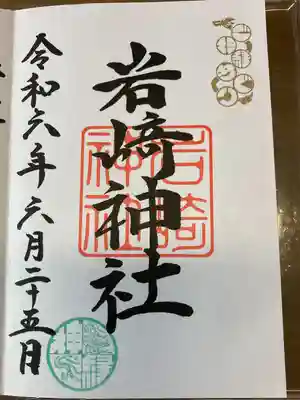 岩﨑神社
岩﨑神社
令和六年六月二十五日